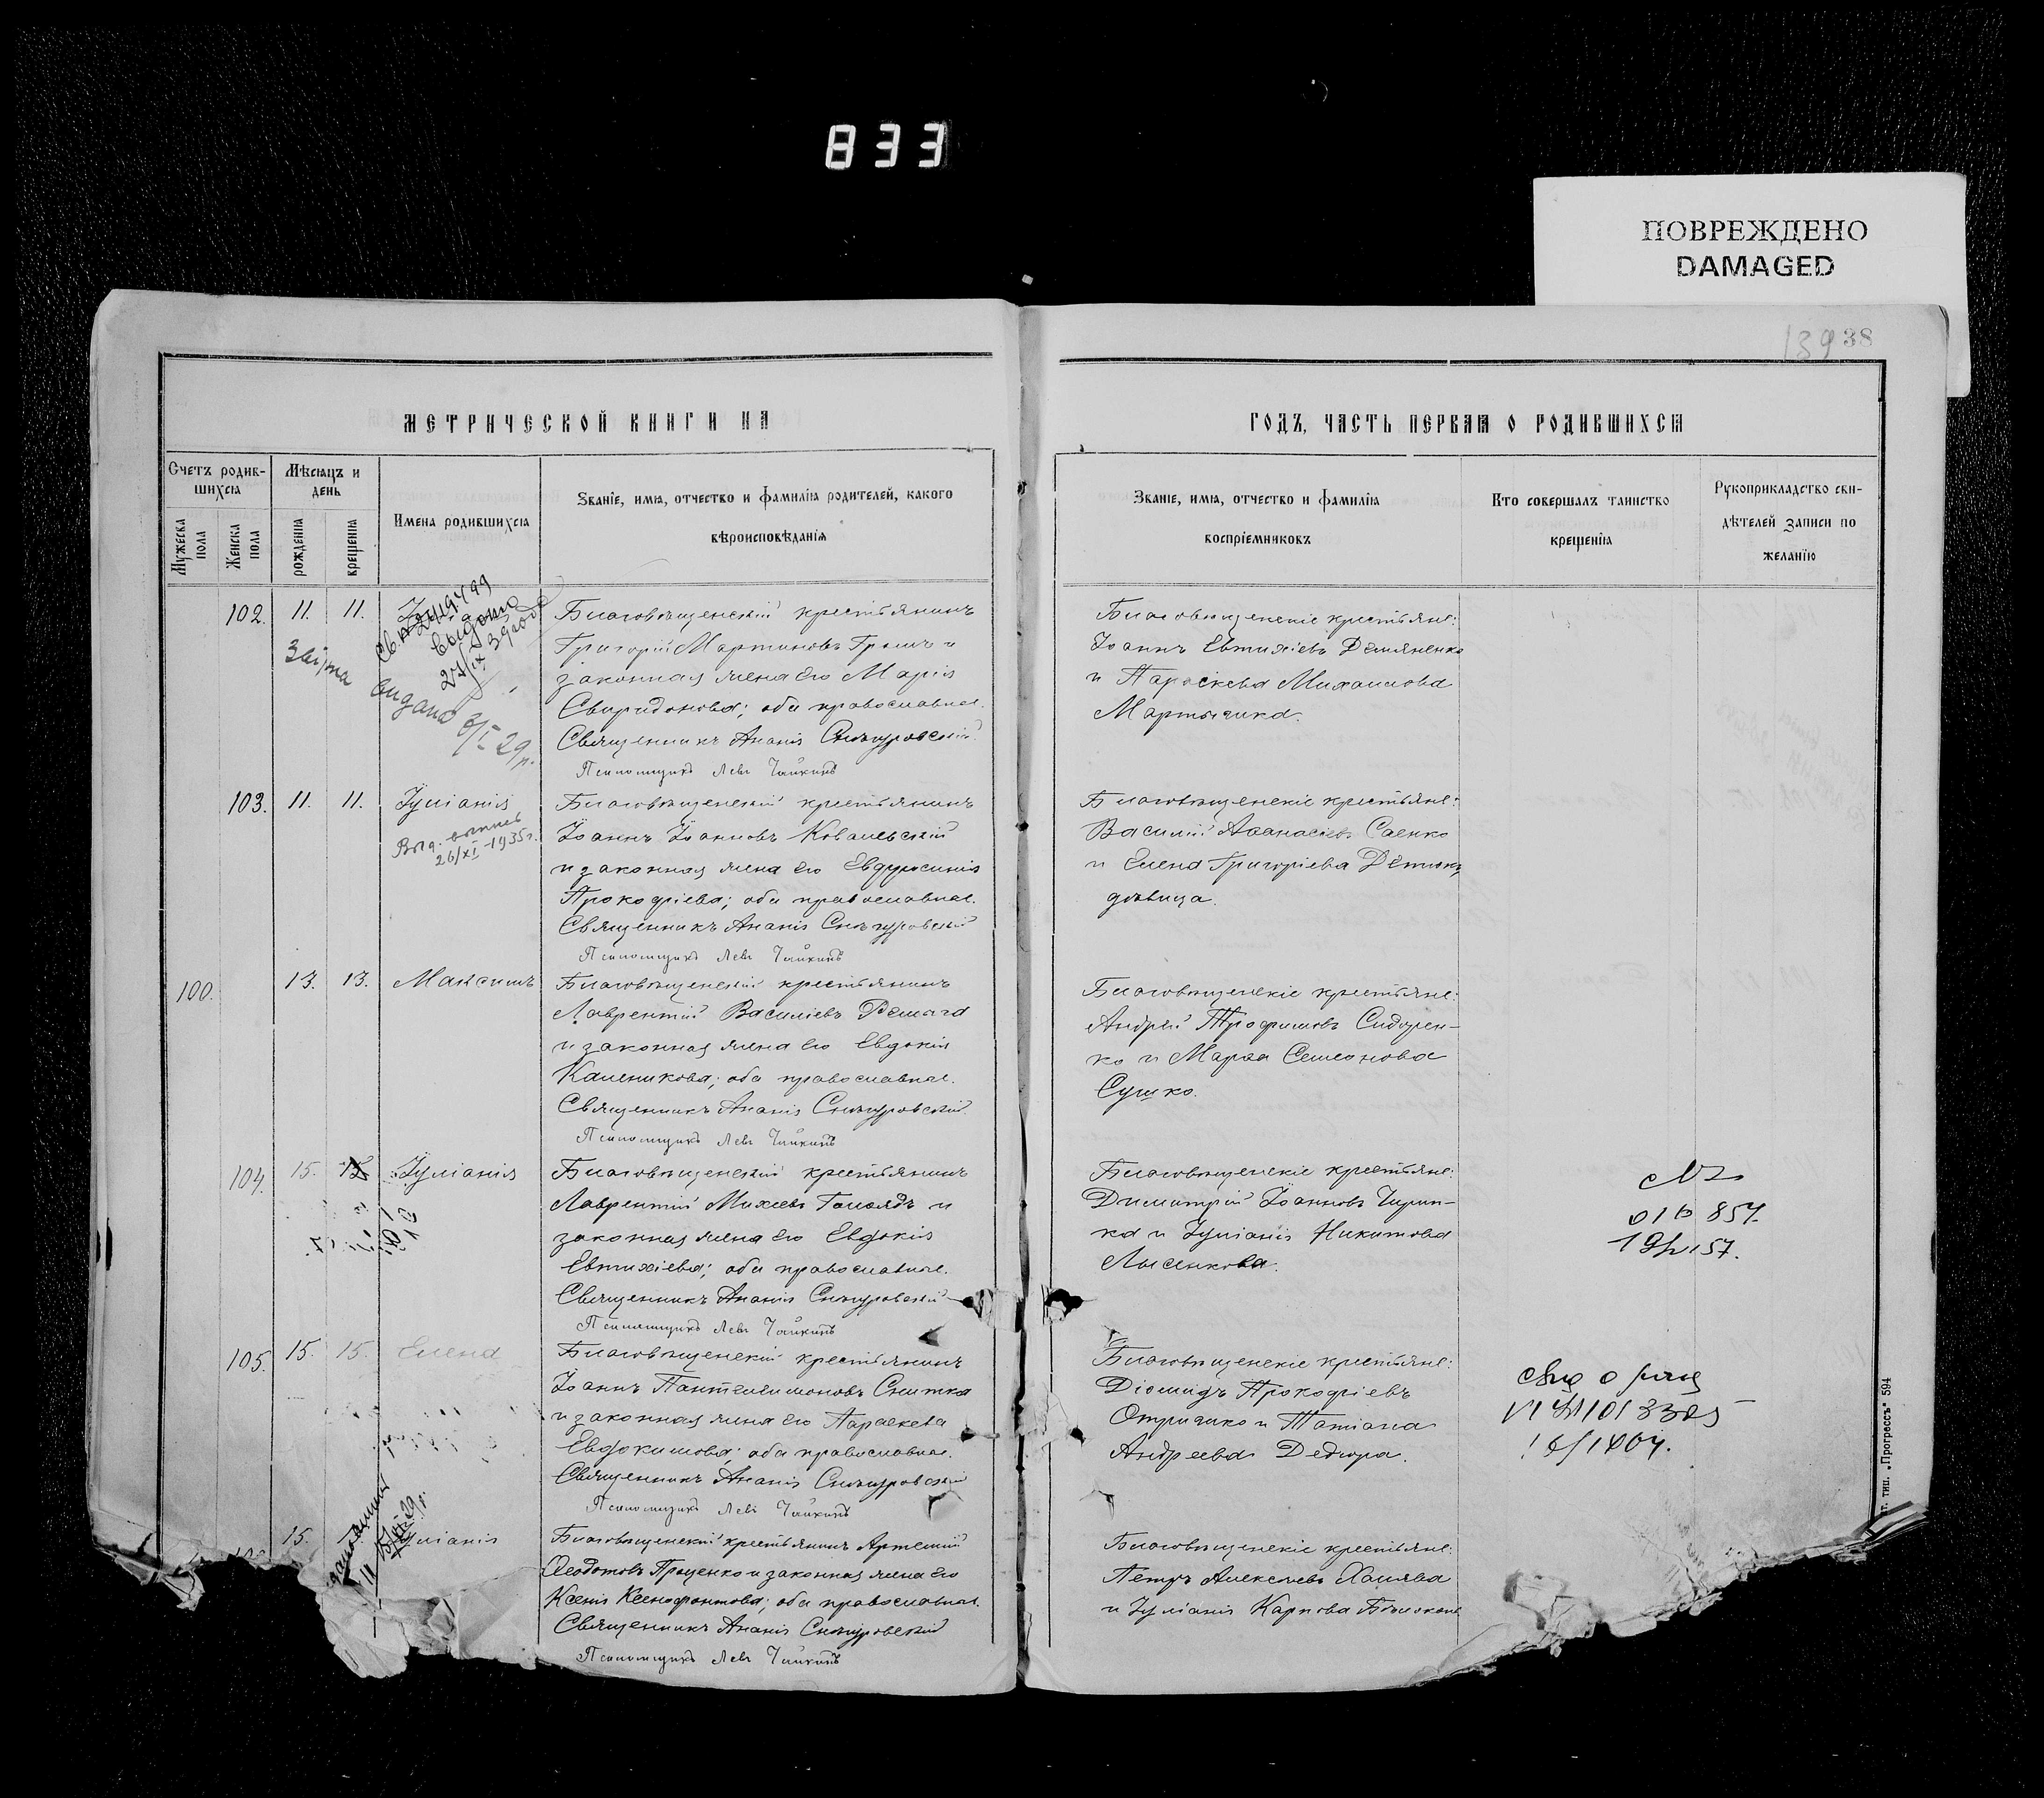 833
ПОВРЕЖДЕНО
DAMAGED
139 38
МЕТРИЧЕСКОЙ КНИГИ НА
ГОДЪ, ЧАСТЬ ПЕРВАЯ О РОДИВШИХСЯ
Счетъ родив-
шихся
Мѣсяцъ и
день
Мужеска
пола
Женска
пола
рожденія
крещенія
Имена родившихся
Званіе, имя, отчество и фамилія родителей, какого
вѣроисповѣданія
Званіе, имя, отчество и фамилія
воспріемниковъ
Кто совершалъ таинство
крещенія
Рукоприкладство сви-
дѣтелей записи по
желанію
102. 11. 11.
выдано
видано 6/I 29р.
Благовѣщенскій крестьянинъ
Григорій Мартиновъ и
законная жена его Марія
Свиридонова; оба православные.
Священникъ Ананія Снѣгуровскій.
Псаломщикъ Левъ Чайкинъ
Благовѣщенскіе крестьяне:
Іоаннъ Евтихіевъ Демяненко
и Параскева Михаилова
Мартычика.
103. 11. 11. Іуліанія
26/XI-1935г.
Благовѣщенскій крестьянинъ
Іоаннъ Іоанновъ Ковалевскій
и законная жена его Евфросинія
Прокофіева; оба православные.
Священникъ Ананія Снѣгуровскій
Псаломщикъ Левъ Чайкинъ
Благовѣщенскіе крестьяне:
Василій Аѳанасіевъ Саенко
и Елена Григоріева
дѣвица.
100. 13. 13. Максимъ
Благовѣщенскій крестьянинъ
Лаврентій Василіевъ
и законная жена его Евдокія
Каленикова; оба православные.
Священникъ Ананія Снѣгуровскій.
Псаломщикъ Левъ Чайкинъ
Благовѣщенскіе крестьяне:
Андрей Трофимовъ Сидорен-
ко и Марѳа Семенова
Сушко.
104. 15. 15 Іуліанія
Благовѣщенскій крестьянинъ
Лаврентій Михеевъ и
законная жена его Евдокія
Евтихіева; оба православные.
Священникъ Ананія Снѣгуровскій
Псаломщикъ Левъ Чайкинъ
Благовѣщенскіе крестьяне:
Димитрій Іоанновъ
ка и Іуліанія Никитова
Лысенкова.
105. 15. 15. Елена
Благовѣщенскій крестьянинъ
Іоаннъ Пантелимоновъ Снитка
и законная жена его Параскева
Евдокимова; оба православные.
Священникъ Ананія Снѣгуровскій
Псаломщикъ Левъ Чайкинъ
Благовѣщенскіе крестьяне:
Діомидъ Прокофіевъ
Отришко и Татіана
Андреева Дедюра.
15. Іуліанія
Благовѣщенскій крестьянинъ Артемій
Ѳеодотовъ Проценко и законная жена его
Ксенія Ксенофонтова; оба православные.
Священникъ Ананія Снѣгуровскій
Псаломщикъ Левъ Чайкинъ
Благовѣщенскіе крестьяне:
Петръ Алексѣевъ Халява
и Іуліанія Карпова
т. тип. „Прогрессъ" 594